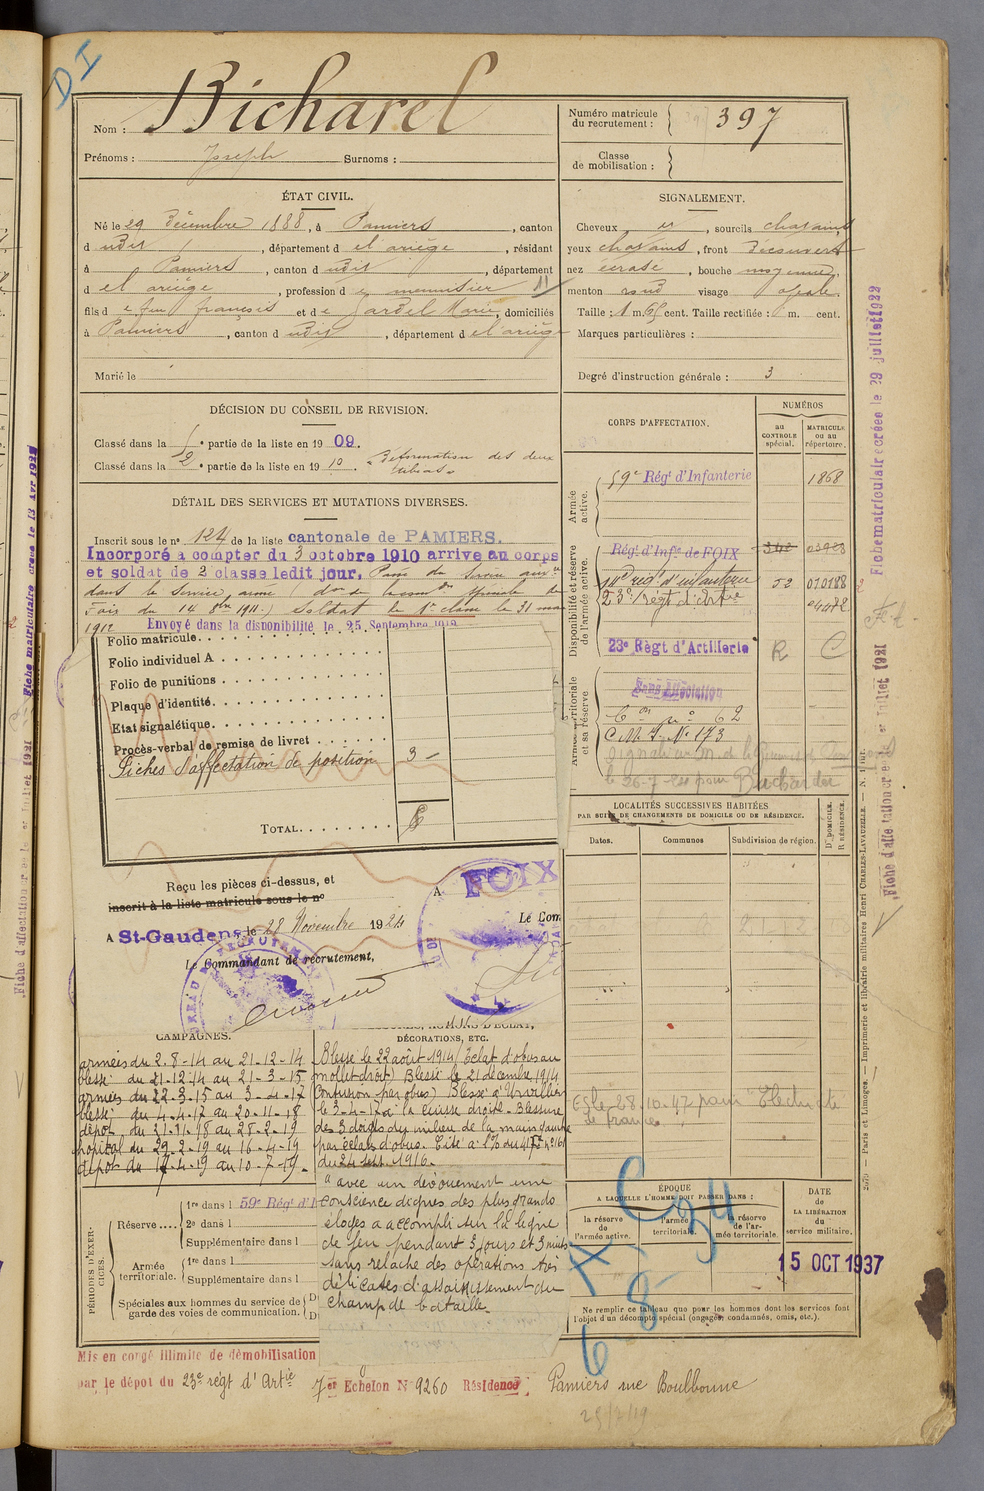 DI
Nom : Bicharel
Prénoms : Joseph Surnoms :
Numéro matricule du recrutement : 397
Classe de mobilisation :
ÉTAT CIVIL.
Né le 29 Décembre 1888, à Pamiers, canton
dudit, département de l'ariège, résidant
à Pamiers, canton dudit, département
de l'ariège, profession de menuisier
fils de feu françois et de Gardel Marie, domiciliés
à Pamiers, canton dudit, département de l'ariège
Marié le
SIGNALEMENT.
Cheveux et, sourcils chatains
yeux chatains, front Découvert
nez écrasé, bouche moyenne,
menton rond visage ovale
Taille : 1 m. 65 cent. Taille rectifiée : m. cent.
Marques particulières :
Degré d'instruction générale : 3
DÉCISION DU CONSEIL DE REVISION.
Classé dans la 1e partie de la liste en 1909.
Classé dans la 2e partie de la liste en 1910. "Déformation des deux tibias"
DÉTAIL DES SERVICES ET MUTATIONS DIVERSES.
Inscrit sous le no 124 de la liste cantonale de PAMIERS.
Incorporé à compter du 3 octobre 1910 arrive au corps
et soldat de 2 classe ledit jour. Passé du Service auxre
dans le Service armé
Foix du 14 1911.) Soldat de 1e classe le 31 mai
1912 Envoyé dans la disponibilité le 25 Septembre 1912
Folio matricule
Folio individuel A
Folio de punitions
Plaque d'identité
Etat signalétique
Procès-verbal de remise de livret
Fiches d'affectation de position 3
TOTAL
Reçu les pièces ci-dessus, et
inscrit à la liste matricule sous le no
A St-Gaudens le 28 Novembre 1924
Le Commandant de recrutement,
BUREAU DE RECRUTEMENT
A FOIX
Le Com
CORPS D'AFFECTATION.
NUMÉROS
au CONTROLE spécial.
MATRICULE ou au répertoire.
Armée active.
59e Régt d'Infanterie 1868
Disponibilité et réserve de l'armée active.
Régt d'Infie de FOIX 342 03928
14e régt d'infanterie 52 07018
23e régt d'artie
23e Règt d'Artillerie R C
Armée territoriale et sa réserve
Sans Affectation
no 62
C.M. I. No 173
LOCALITÉS SUCCESSIVES HABITÉES
PAR SUITE DE CHANGEMENTS DE DOMICILE OU DE RÉSIDENCE.
Dates. Communes Subdivision de région. D. DOMICILE. R. RÉSIDENCE.
28.10.47 pour Electricité
de France
CAMPAGNES.
armées du 2-8-14 au 21-12-14
blessé du 21-12-14 au 21-3-15
armées du 22-3-15 au 3-4-17
blessé du 4-4-17 au 20-11-18
dépôt du 21-11-18 au 28-2-19
hôpital du 29-2-19 au 16-4-19
dépôt du 17-4-19 au 10-7-19.
DÉCORATIONS, ETC.
Blessé le 22 août 1914 (Eclat d'obus au
mollet droit) Blessé le 21 décembre 1914
(Contusion par obus) Blessé à Urvillers
le 3-4-17 à la cuisse droite. Blessure
des 3 doigts du milieu de la main gauche
par éclats d'obus. Cité à l'O/ du
1916.
"avec un dévouement une
conscience dignes des plus grands
éloges a accompli sur la ligne
de feu pendant 3 jours et 3 nuits
sans relache des opérations très
délicates d'assainissement du
champ de bataille
PÉRIODES D'EXERCICES.
Réserve
1re dans l 59e Régt d'I
2e dans l
Supplémentaire dans l
Armée territoriale.
1re dans l
Supplémentaire dans l
Spéciales aux hommes du service de garde des voies de communication.
ÉPOQUE
A LAQUELLE L'HOMME DOIT PASSER DANS :
la réserve de l'armée active.
l'armée territoriale.
la réserve de l'armée territoriale.
DATE de LA LIBÉRATION du service militaire.
15 OCT 1937
Ne remplir ce tableau que pour les hommes dont les services font
l'objet d'un décompte spécial (engagés, condamnés, omis, etc.).
Mis en congé illimité de démobilisation
par le dépôt du 23e régt d'Artie 7er Echelon N 9260 Résidence Pamiers rue Boulbonne
25/7/19
Fiche matriculaire créée le 29 juillet 1922
Paris et Limoges. — Imprimerie et librairie militaires Henri CHARLES-LAVAUZELLE.